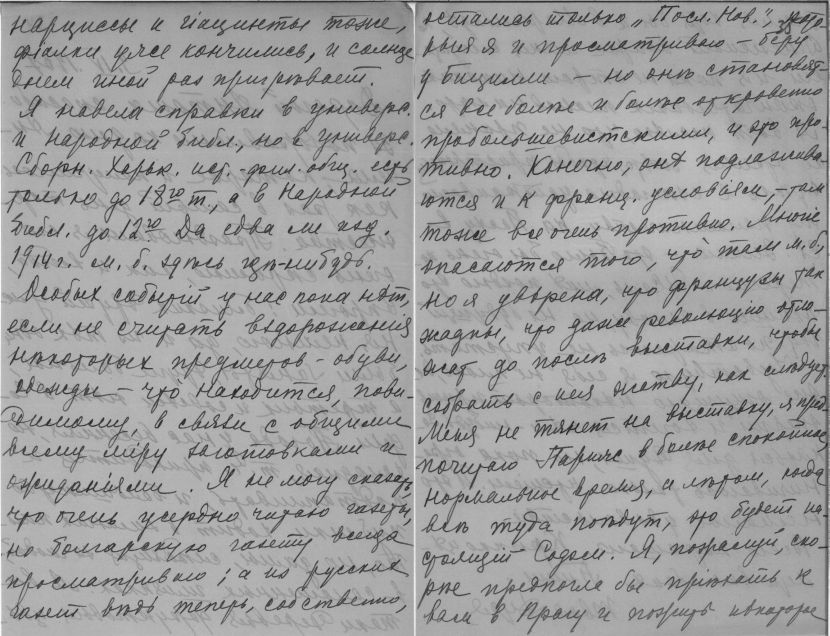 нарциссы и гiацинты тоже,
фiалки уже кончились, и солнце
днем иной раз пригрѣвает.
Я навела справки в универс.
и народной библ., но в универс.
Сборн. Харьк. ист.-фил. общ. есть
только до 18го т., а в Народной
Библ. до 12го Да едва ли изд.
1914 г. м. б. здѣсь гдѣ-нибудь.
Особых событiй у нас пока нѣт,
если не считать вздорожанiя
нѣкоторых предметов – обуви,
одежды – что находится, пови-
димому, в связи с общими
всему мiру заготовками и
ожиданiями. Я не могу сказать,
что очень усердно читаю газеты,
но болгарскую газету всегда
просматриваю; а из русских
газет вѣдь теперь, собственно,
остались только „Посл. Нов.", кото-
рыя я и просматриваю – беру
у Бицилли – но онѣ становят-
ся все болѣе и болѣе откровенно
пробольшевистскими, и это про-
тивно. Конечно, онѣ подлажива-
ются и к франц. условiям, – там
тоже все очень противно. Многiе
опасаются того, что там м. б.,
но я увѣрена, что французы так
жадны, что даже революцiю отло-
жат до послѣ выставки, чтобы
собрать с нея жатву, как слѣдует.
Меня не тянет на выставку, я пред-
почитаю Париж в болѣе спокойное,
нормальное время, а лѣтом, когда
всѣ туда поѣдут, это будет на-
стоящiй Содом. Я, пожалуй, ско-
рѣе предпочла бы прiѣхать к
вам в Прагу и пожить нѣкоторое